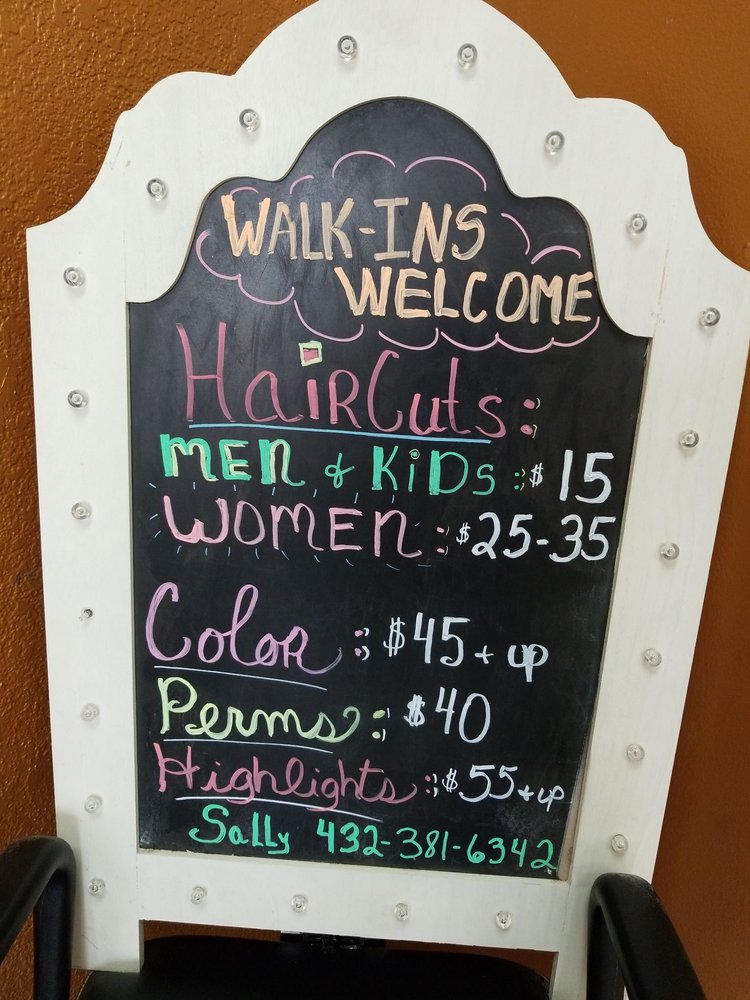 WALK-INS
WELCOME
HaiRCuts:
MEN & KiDs: $15
WOMEN: $25-35
Color: $45 + up
Perms: $40
Highlights: $55 + up
Sally 432-381-6342